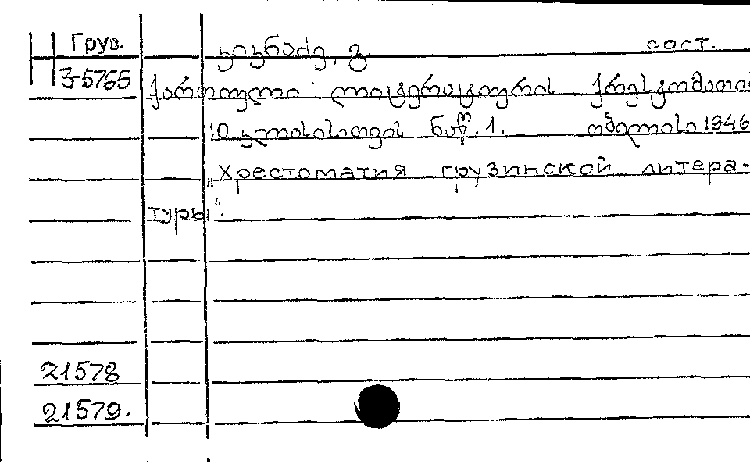 Груз. კიკნაძე, გ. сост.
3-5765 ქართული ლიტერატურის ქრესტომათია
კლასისათვის ნაწ. 1. თბილისი 1946
„Хрестоматия грузинской литера-
туры“.
21578
21579.